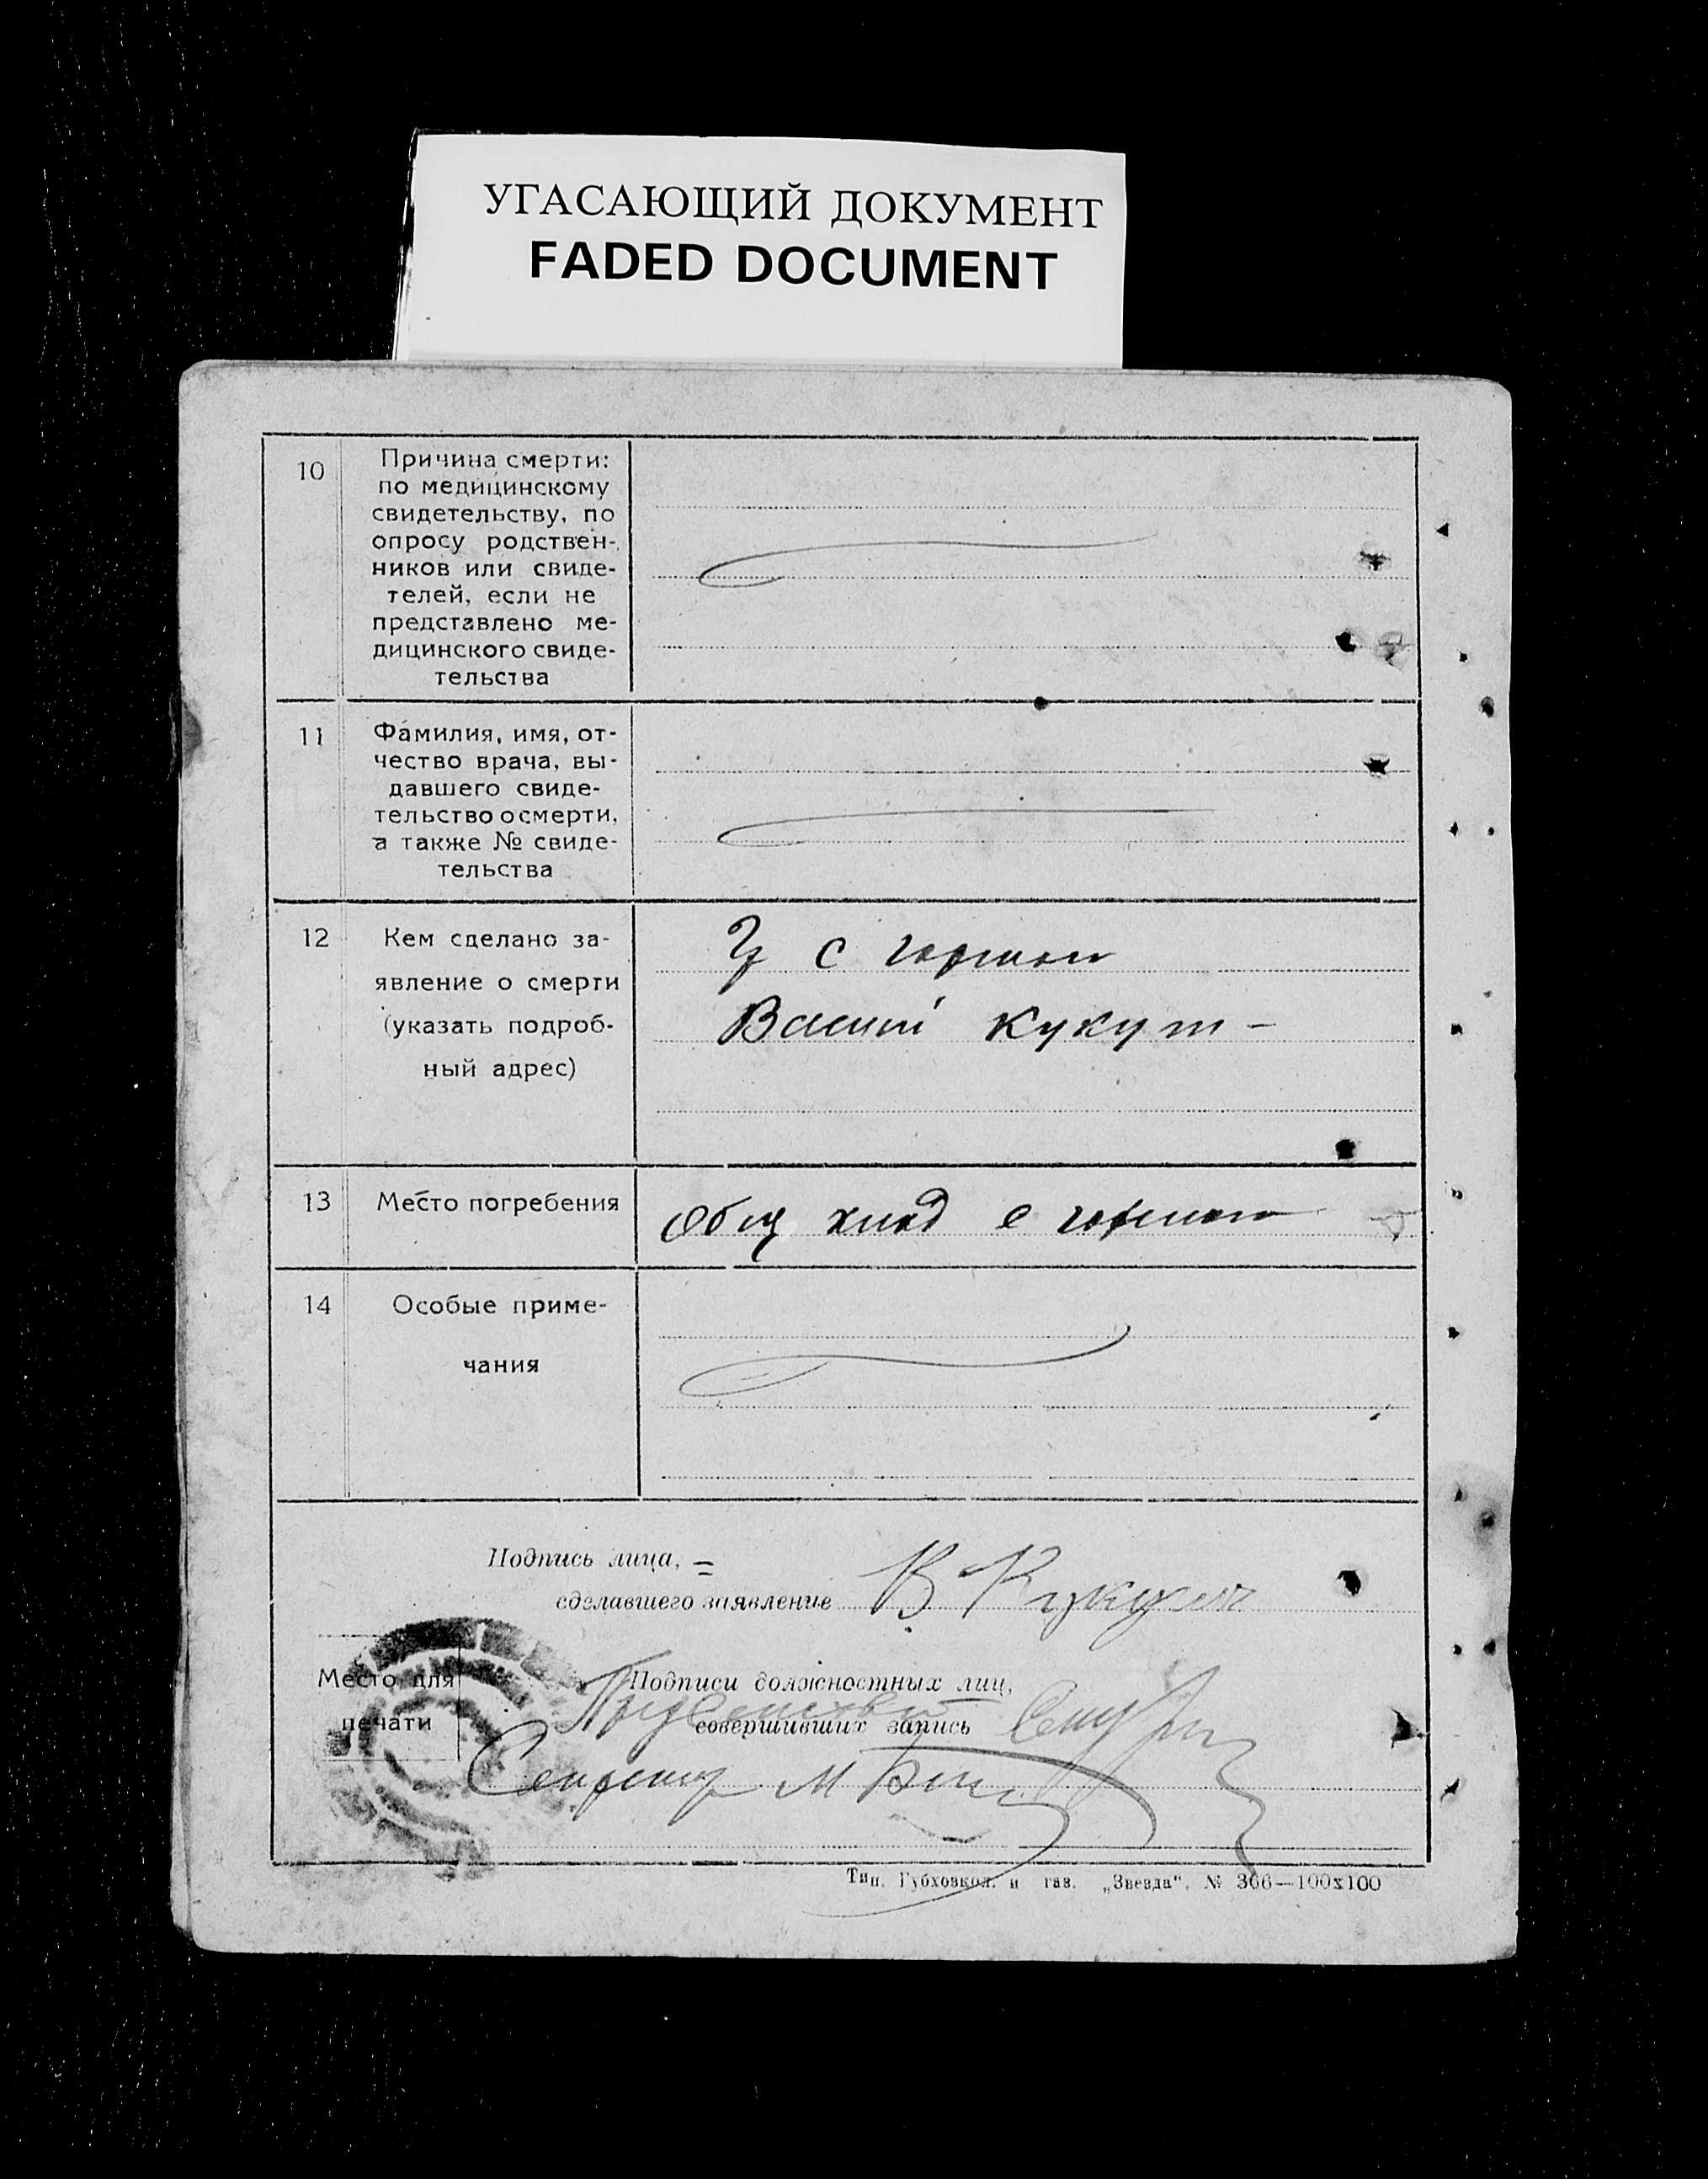 УГАСАЮЩИЙ ДОКУМЕНТ
FADED DOCUMENT
10
Причина смерти:
по медицинскому
свидетельству, по
опросу родствен-
ников или свиде-
телей, если не
представлено ме-
дицинского свиде-
тельства
11
Фамилия, имя, от-
чество врача, вы-
давшего свиде-
тельство о смерти,
а также № свиде-
тельства
12
Кем сделано за-
явление о смерти
(указать подроб-
ный адрес)
с
кукут -
13
Место погребения
Общ
14
Особые приме-
чания
Подпись лица,
сделавшего заявление
В
Место для
печати
Подписи должностных лиц,
совершивших запись
Секретарь М
Тип. Губховкол. и газ. „Звезда“. № 366—100х100